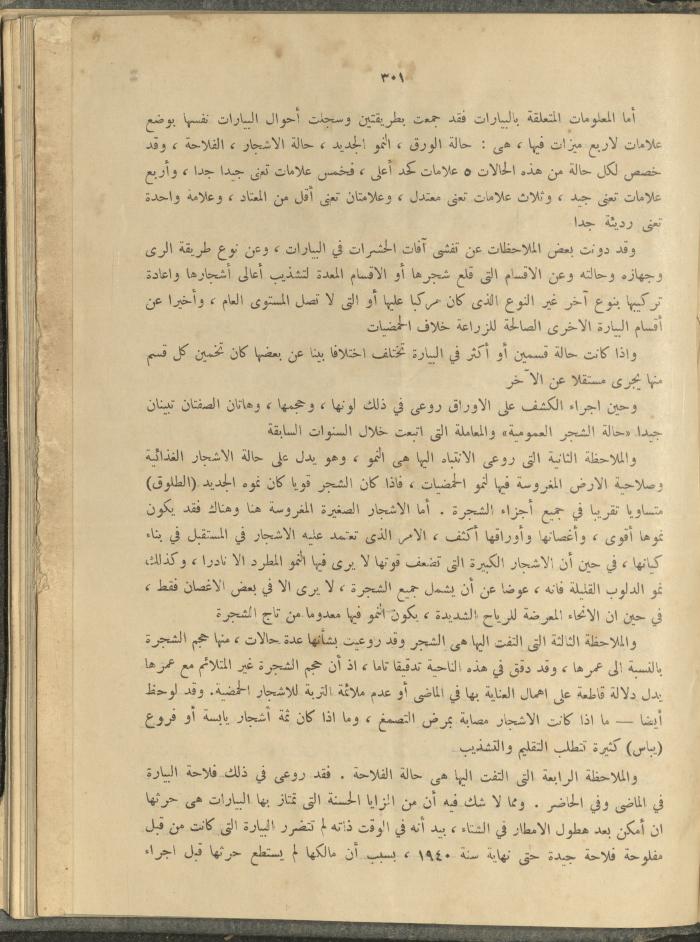 ٣٠١
أما المعلومات المتعلقة بالبيارات فقد جمعت بطريقتين وسجلت أحوال البيارات نفسها بوضع
علامات لاربع ميزات فيها ، هى : حالة الورق ، النمو الجديد ، حالة الاشجار ، الفلاحة ، وقد
خصص لكل حالة من هذه الحالات ٥ علامات كحد أعلى ، فخمس علامات تعنى جيدا جدا ، وأربع
علامات تعنى جيد ، وثلاث علامات تعنى معتدل ، وعلامتان تعنى أقل من المعتاد ، وعلامة واحدة
تعنى رديئة جدا
وقد دونت بعض الملاحظات عن تفشى آفات الحشرات في البيارات ، وعن نوع طريقة الرى
وجهازه وحالته وعن الاقسام التى قلع شجرها أو الاقسام المعدة لتشذيب أعالى أشجارها واعادة
تركيبها بنوع آخر غير النوع الذى كان مركبا عليها أو التى لا تصل المستوى العام ، وأخيرا عن
أقسام البيارة الاخرى الصالحة للزراعة خلاف الحمضيات
واذا كانت حالة قسمين أو أكثر في البيارة تختلف اختلافا بينا عن بعضها كان تخمين كل قسم
منها يجرى مستقلا عن الآخر
وحين اجراء الكشف على الاوراق روعى في ذلك لونها ، وحجمها ، وهاتان الصفتان تبينان
جيدا «حالة الشجر العمومية» والمعاملة التى اتبعت خلال السنوات السابقة
والملاحظة الثانية التى روعى الانتباه اليها هى النمو ، وهو يدل على حالة الاشجار الغذائية
وصلاحية الارض المغروسة فيها لنمو الحمضيات ، فاذا كان الشجر قويا كان نموه الجديد (الطلوق)
متساويا تقريبا في جميع أجزاء الشجرة . أما الاشجار الصغيرة المغروسة هنا وهناك فقد يكون
نموها أقوى ، وأغصانها وأوراقها أكثف ، الامر الذى تعتمد عليه الاشجار في المستقبل في بناء
كيانها ، في حين أن الاشجار الكبيرة التى تضعف قوتها لا يرى فيها النمو المطرد الا نادرا ، وكذلك
نمو الدلوب القليلة فانه ، عوضا عن أن يشمل جميع الشجرة ، لا يرى الا في بعض الاغصان فقط ،
في حين ان الانحاء المعرضة للرياح الشديدة ، يكون النمو فيها معدوما من تاج الشجرة
والملاحظة الثالثة التى التفت اليها هى الشجر وقد روعيت بشأنها عدة حالات ، منها حجم الشجرة
بالنسبة الى عمرها ، وقد دقق في هذه الناحية تدقيقا تاما ، اذ أن حجم الشجرة غير المتلائم مع عمرها
يدل دلالة قاطعة على اهمال العناية بها في الماضى أو عدم ملائمة التربة للاشجار الحمضية . وقد لوحظ
أيضا — ما اذا كانت الاشجار مصابة بمرض التصمغ ، وما اذا كان ثمة أشجار يابسة أو فروع
(يباس) كثيرة تتطلب التقليم والتشذيب
والملاحظة الرابعة التى التفت اليها هى حالة الفلاحة . فقد روعى في ذلك فلاحة البيارة
في الماضى وفي الحاضر . ومما لا شك فيه أن من المزايا الحسنة التى تمتاز بها البيارات هى حرثها
ان أمكن بعد هطول الامطار في الشتاء ، بيد أنه في الوقت ذاته لم تتضرر البيارة التى كانت من قبل
مفلوحة فلاحة جيدة حتى نهاية سنة ١٩٤٠ ، بسبب أن مالكها لم يستطع حرثها قبل اجراء